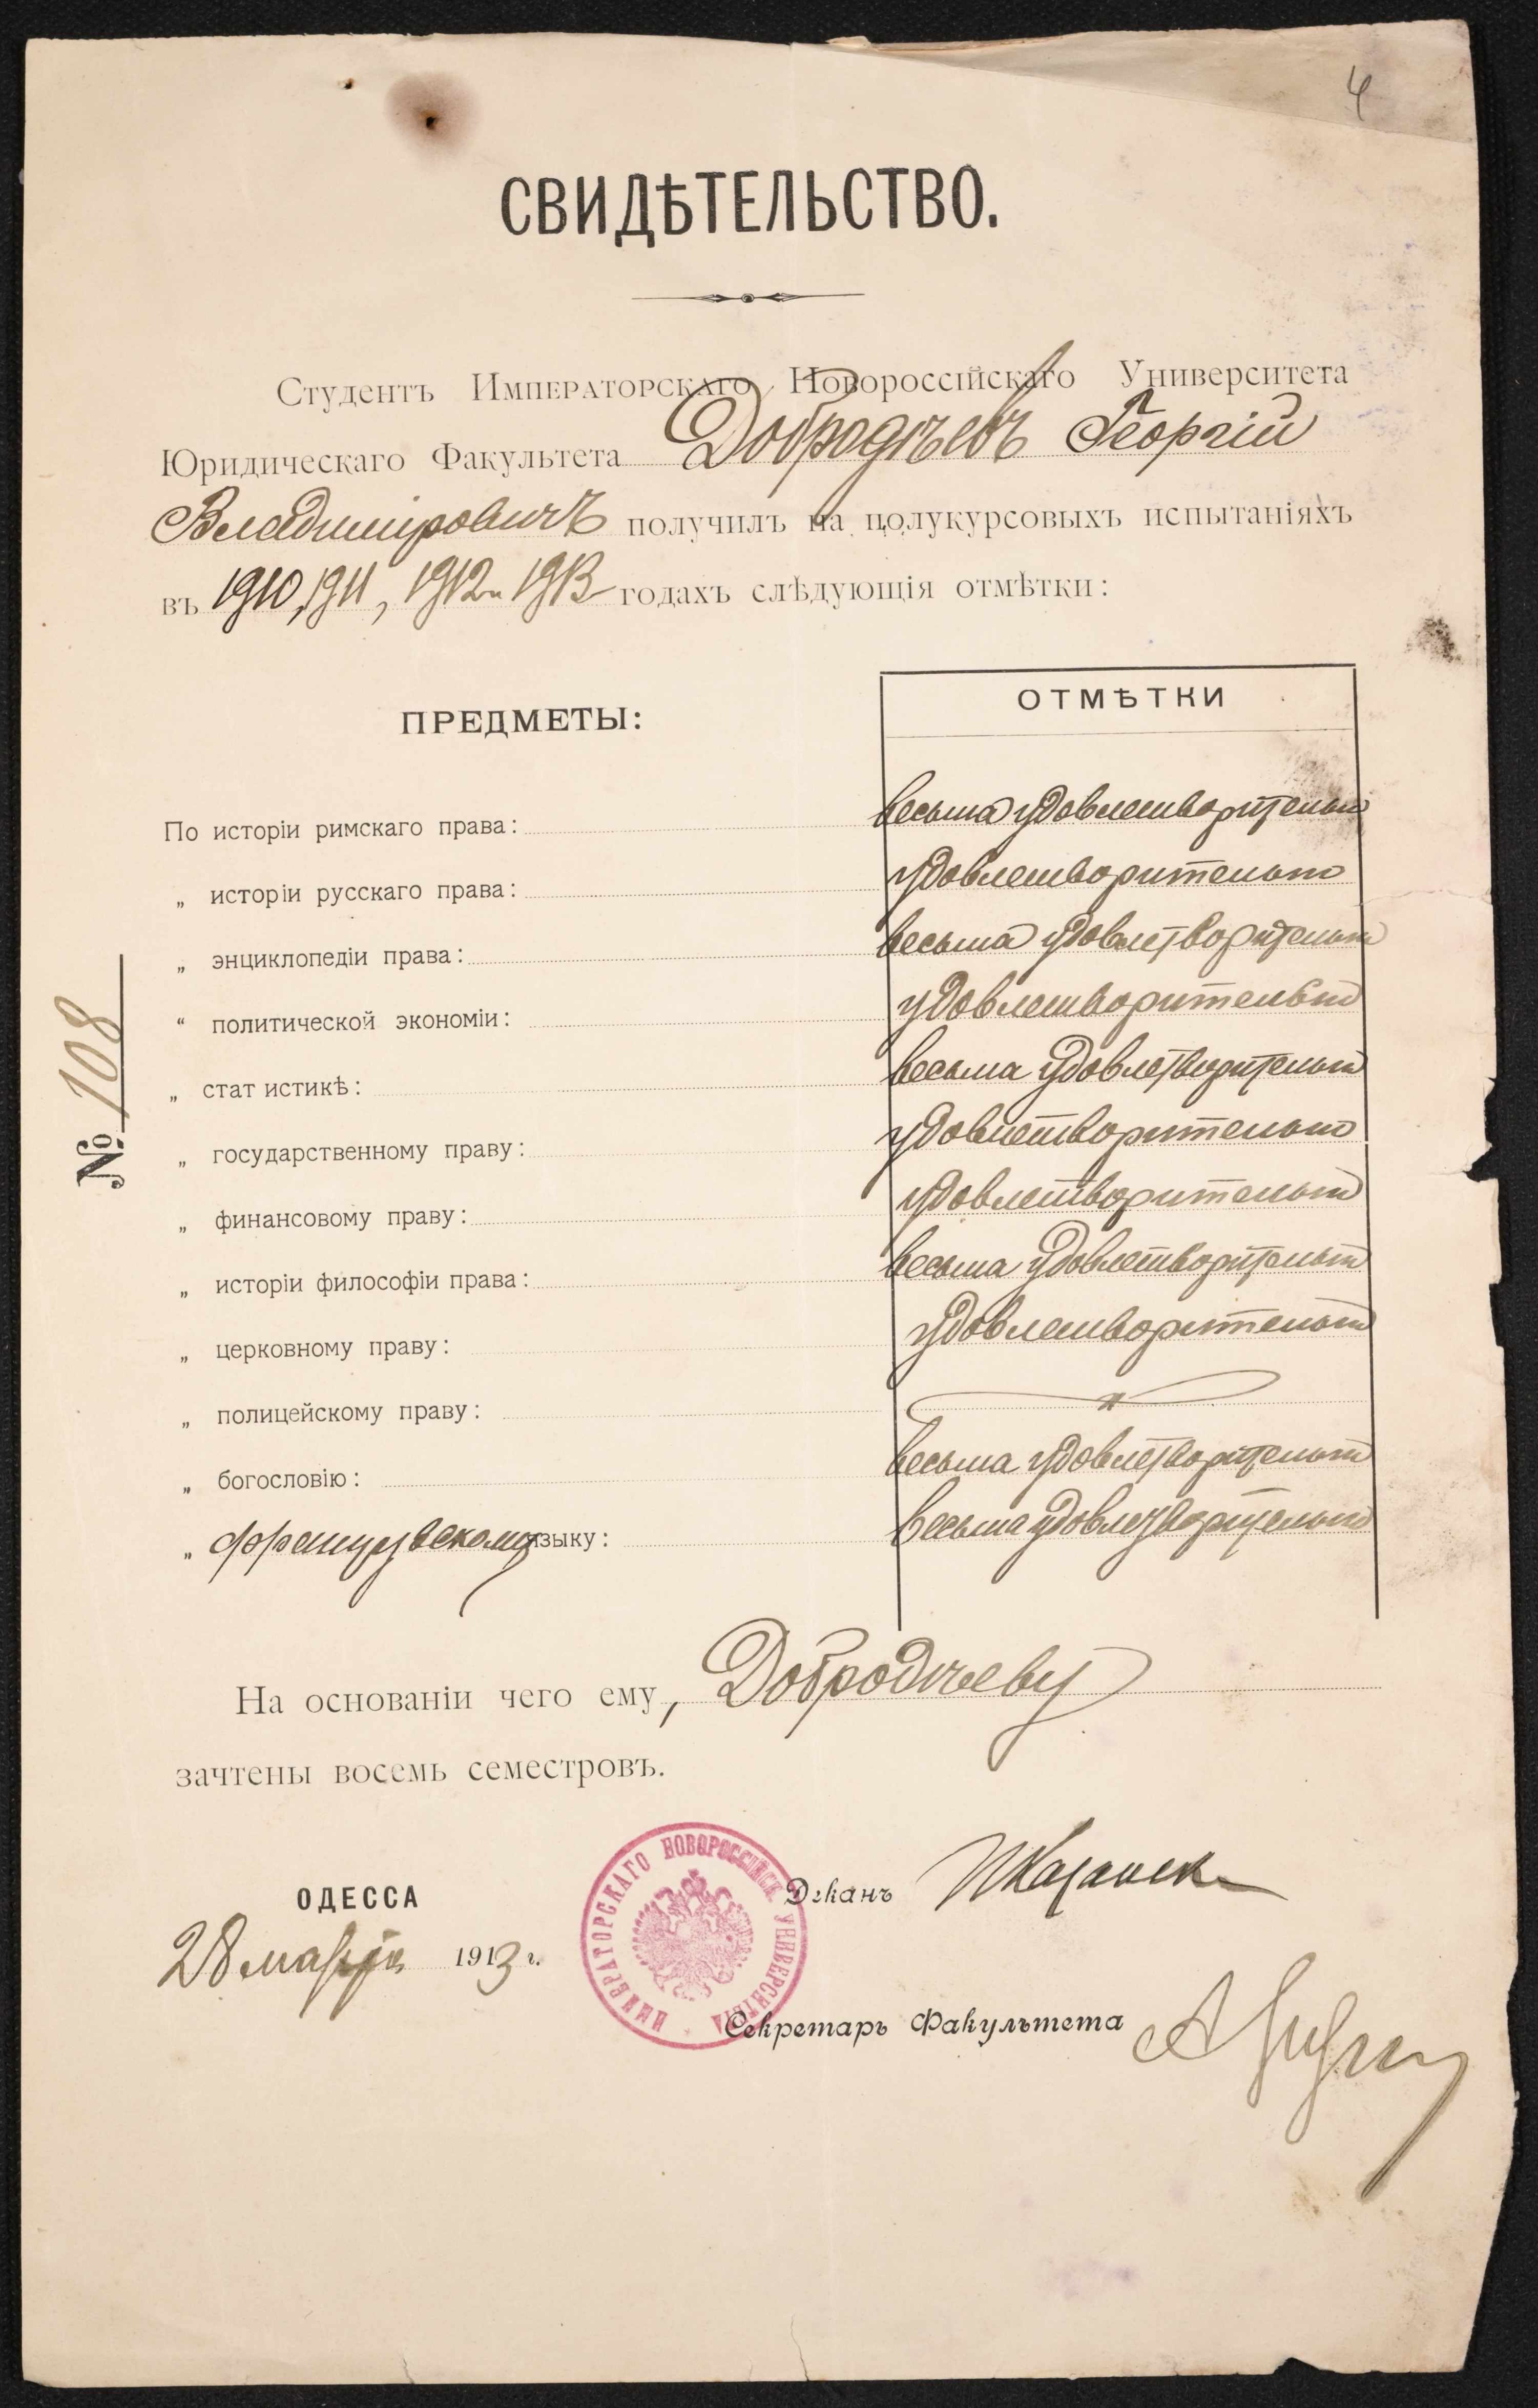 4
СВИДѢТЕЛЬСТВО.
Студентъ Императорскаго Новороссійскаго Университета
Юридическаго Факультета Добродѣевъ Георгій
Владиміровичъ получилъ на полукурсовыхъ испытаніяхъ
въ 1910, 1911, 1912 и 1913 годахъ слѣдующія отмѣтки:
ПРЕДМЕТЫ: ОТМѢТКИ
По исторіи римскаго права: весьма удовлетворительно
„ исторіи русскаго права: удовлетворительно
„ энциклопедіи права: весьма удовлетворительно
“ политической экономіи: удовлетворительно
„ стат истикѣ: весьма удовлетворительно
„ государственному праву: удовлетворительно
„ финансовому праву: удовлетворительно
„ исторіи философіи права: весьма удовлетворительно
„ церковному праву: удовлетворительно
„ полицейскому праву:
„ богословію: весьма удовлетворительно
„ французскому языку: весьма удовлетворительно
№ 108
На основаніи чего ему, Добродѣеву
зачтены восемь семестровъ.
ОДЕССА
28 марта 1913 г.
ИМПЕРАТОРСКАГО НОВОРОССІЙСК. УНИВЕРСИТЕТА
Деканъ
Секретарь Факультета